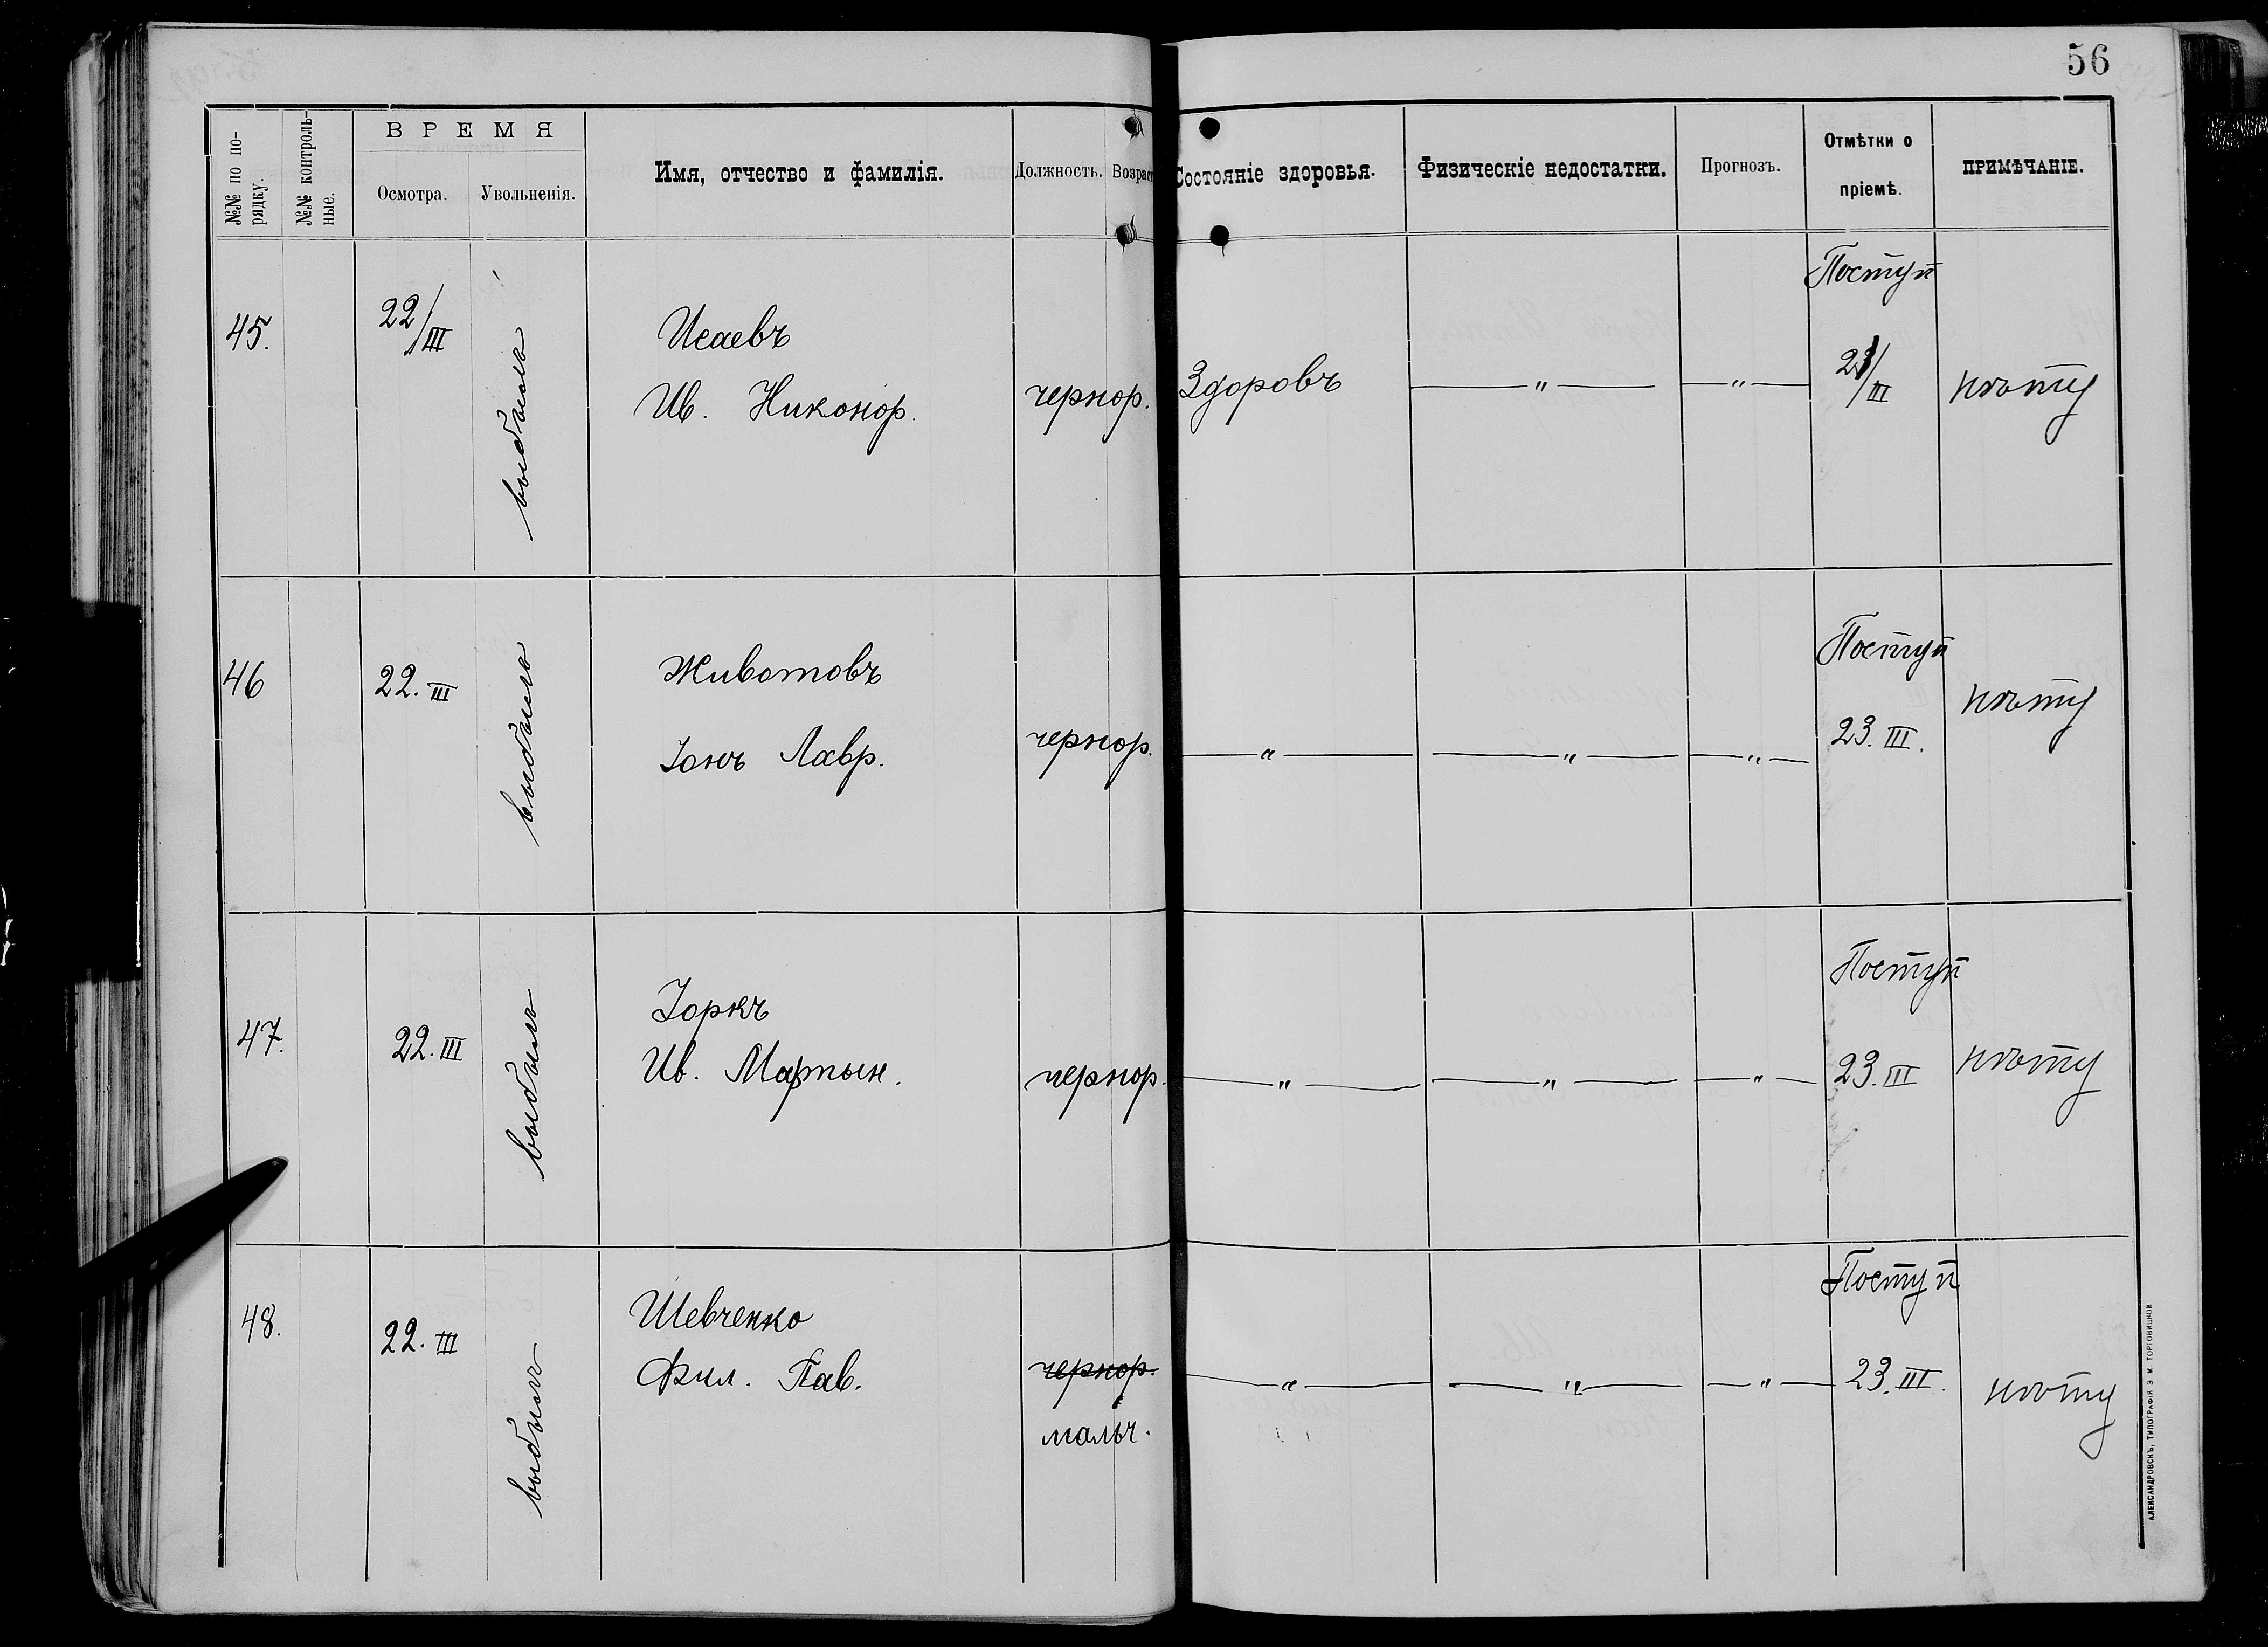 56
№№ по по-
рядку.
№№ контроль-
ные.
ВРЕМЯ
Осмотра.
Увольненія.
Имя, отчество и фамилія.
Должность.
Возраст
Состояніе здоровья.
Физическіе недостатки.
Прогнозъ.
Отмѣтки о
пріемѣ.
ПРИМѢЧАНІЕ.
45.
22/III
выбылъ
Исаевъ
Ив. Никонор.
чернор.
Здоровъ
— " —
— " —
Поступ
23/III
нѣту
46
22. III
выбылъ
Животовъ
Іонъ Лавр.
чернор.
— " —
— " —
— " —
Поступ
23. III.
нѣту
47.
22. III
выбылъ
Іоркъ
Ив. Мартын.
чернор.
— " —
— " —
— " —
Поступ
23. III
нѣту
48.
22. III
выбылъ
Шевченко
Фил. Пав.
чернор.
мальч.
— " —
— " —
— " —
Поступ
23. III.
нѣту
АЛЕКСАНДРОВСКЪ, ТИПОГРАФІЯ Э. М. ТОРГОВИЦКОЙ